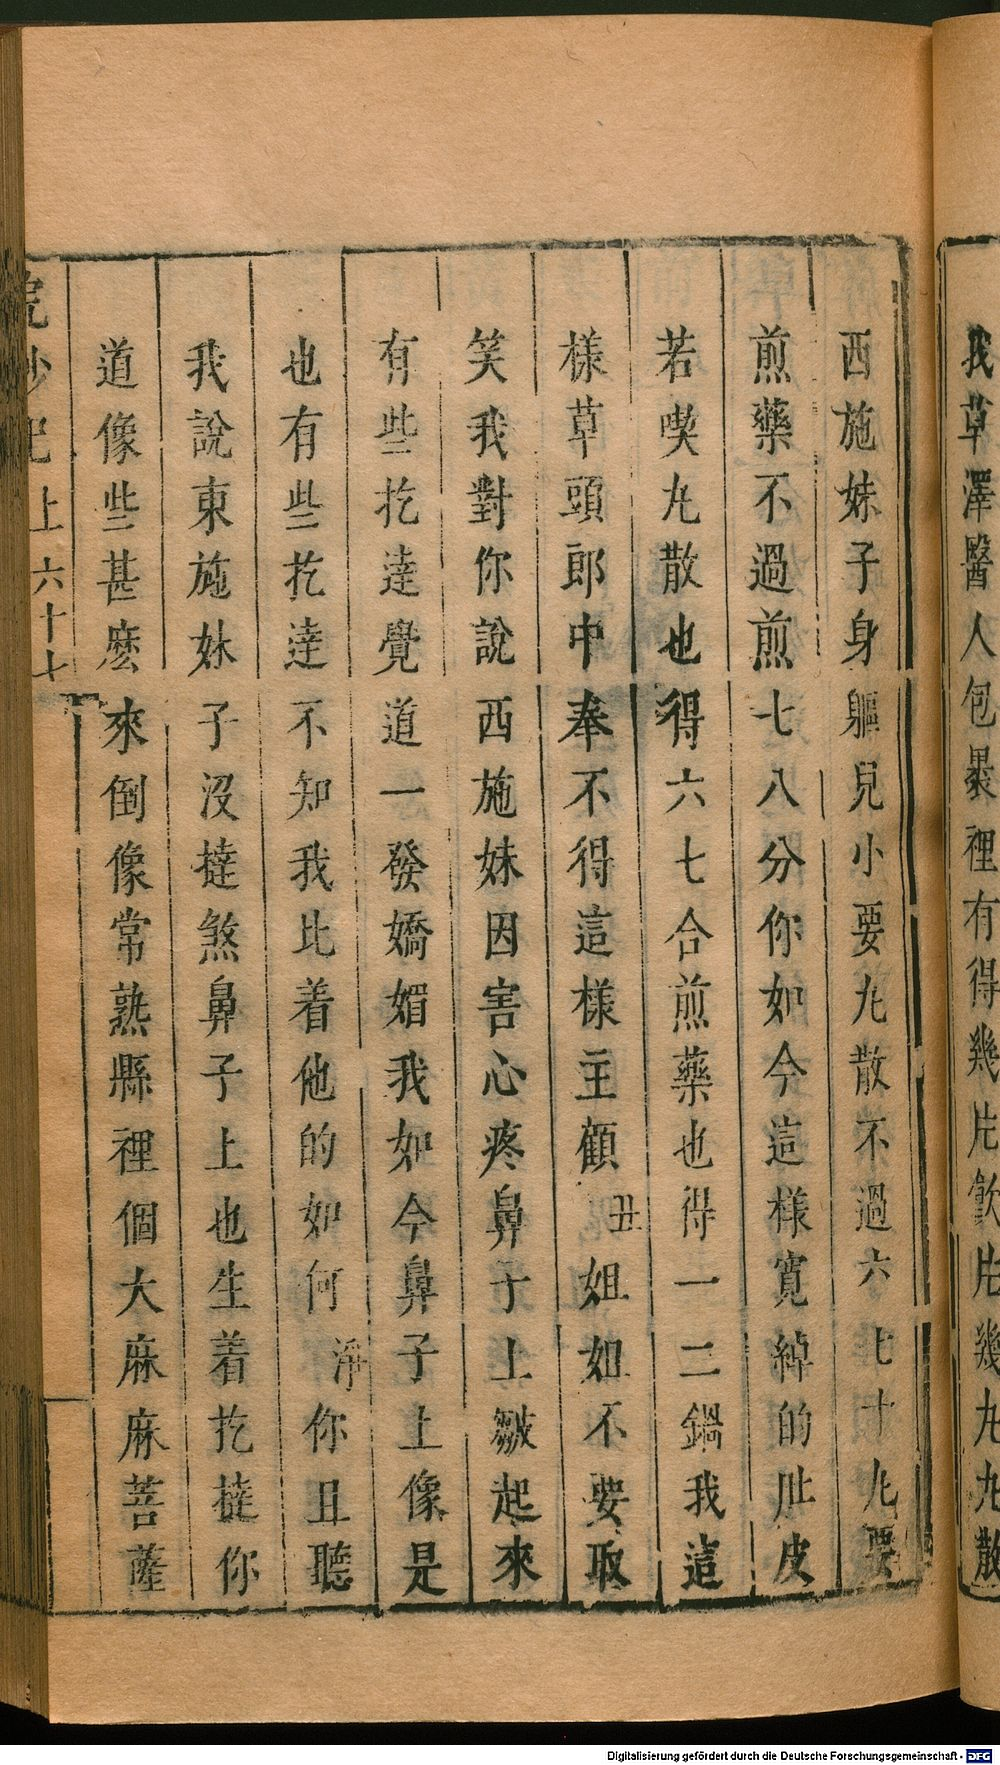 我草澤醫人包裹裡有得幾片飲片幾丸丸散
西施妹子身軀兒小要丸散不過六七十丸要
煎藥不過煎七八分你如今這樣寬綽的肚皮
若喫丸散也得六七合煎藥也得一二鍋我這
樣草頭郎中奉不得這樣主顧丑姐如不要取
笑我對你說西施妹因害心疼鼻子上皺起來
有些扢達覺道一發嬌媚我如今鼻子上像是
也有些扢達不知我比着他的如何淨你且聽
我說東施妹子沒撻煞鼻子上也生着扢撻你
道像些甚麽來倒像常熟縣裡個大麻麻菩薩
浣紗記上六十七
Digitalisierung gefördert durch die Deutsche Forschungsgemeinschaft - DFG